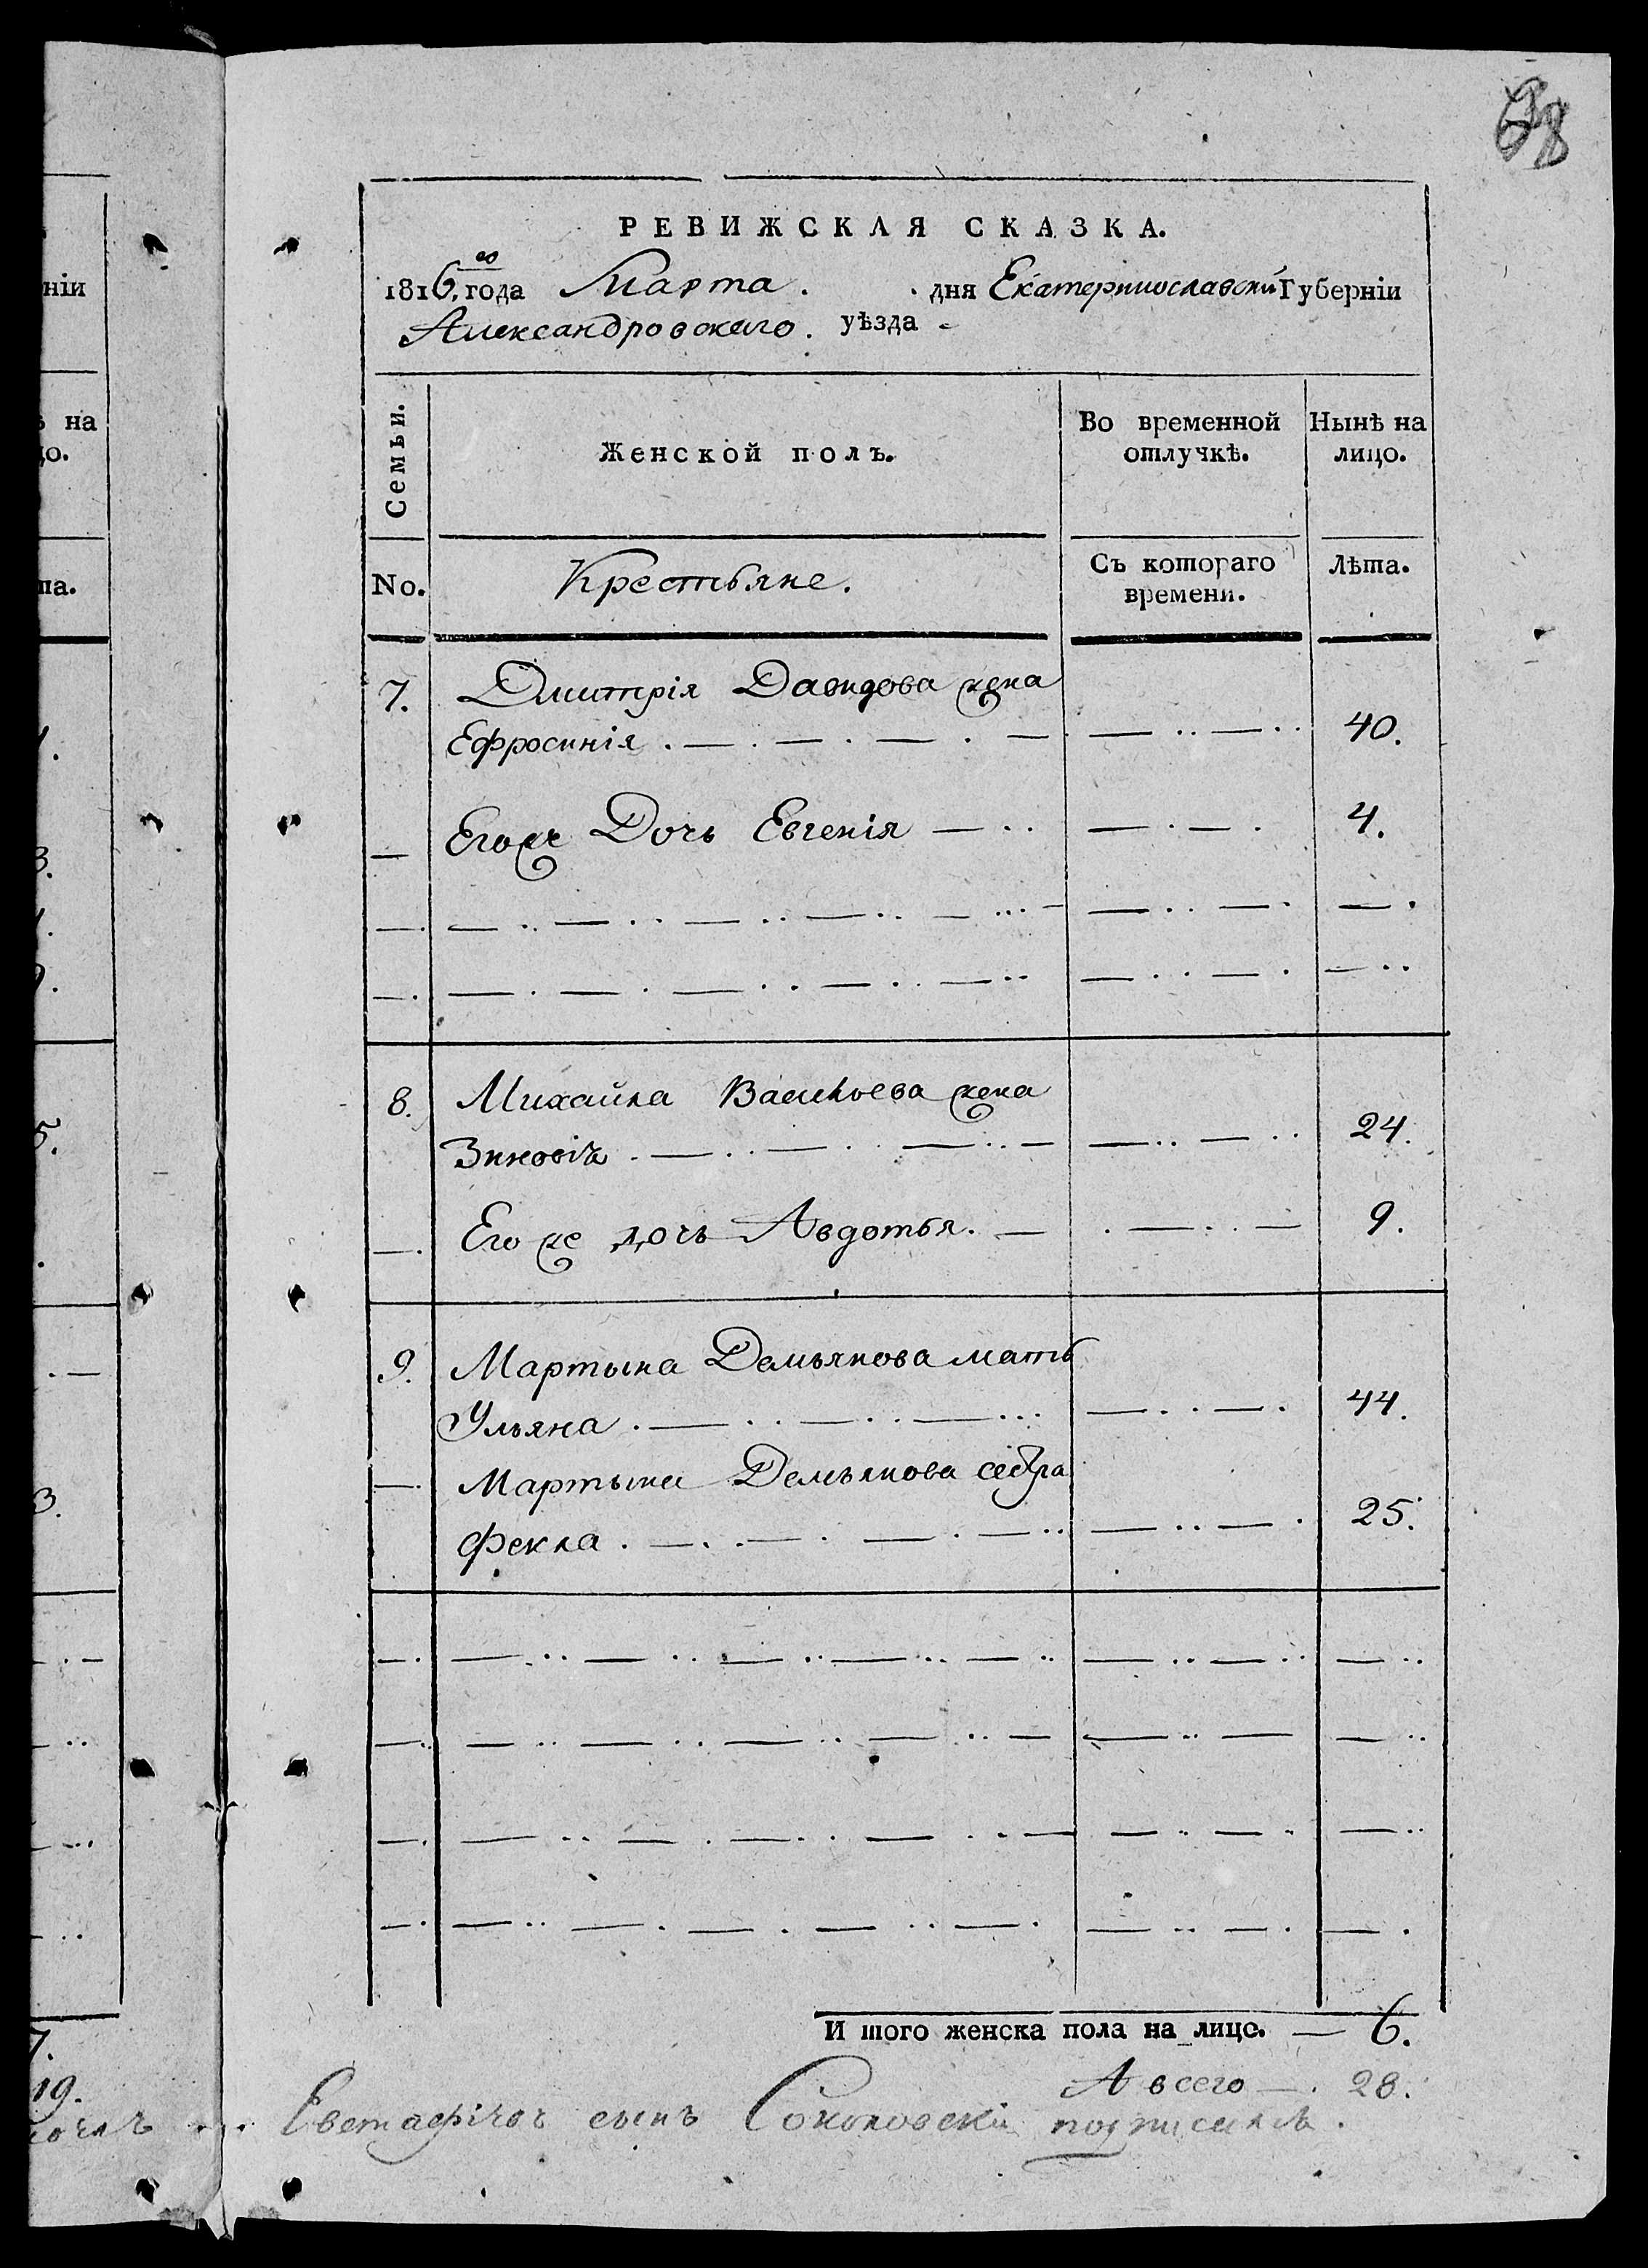 68
РЕВИЖСКАЯ СКАЗКА.
1816.го года Марта . . дня Екатеринославской Губерніи
Александровскаго . уѣзда
Семьи.
Женской полъ.
Во временной отлучкѣ.
Нынѣ на лицо.
No.
Крестьяне.
Съ котораго времени.
Лѣта.
7. Дмитрія Давидова жена
Ефросинія . — . — . — . — 40.
— Егоже Дочь Евгенія — . . 4.
8. Михайла Васильева жена
Зиновія . — . . — . . — 24.
— . Его же дочь Авдотья . — 9.
9. Мартына Демьянова мать
Ульяна . — . . — . . — . . . 44.
— . Мартына Демьянова сестра
Фекла . — . . — . — . — . . 25.
Итого женска пола на лицо. — 6.
А всего — . 28.
Евстафіевъ сынъ подписался .
ніи
ѣ на
цо.
та.
1.
3.
5.
3.
7.
19.